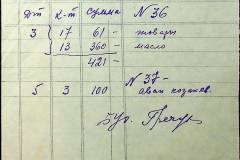 Дт К-т Сумма № 36
3 17 61- товары
13 360- масло
421-
№ 37-
5 3 100 аванс
Бух.